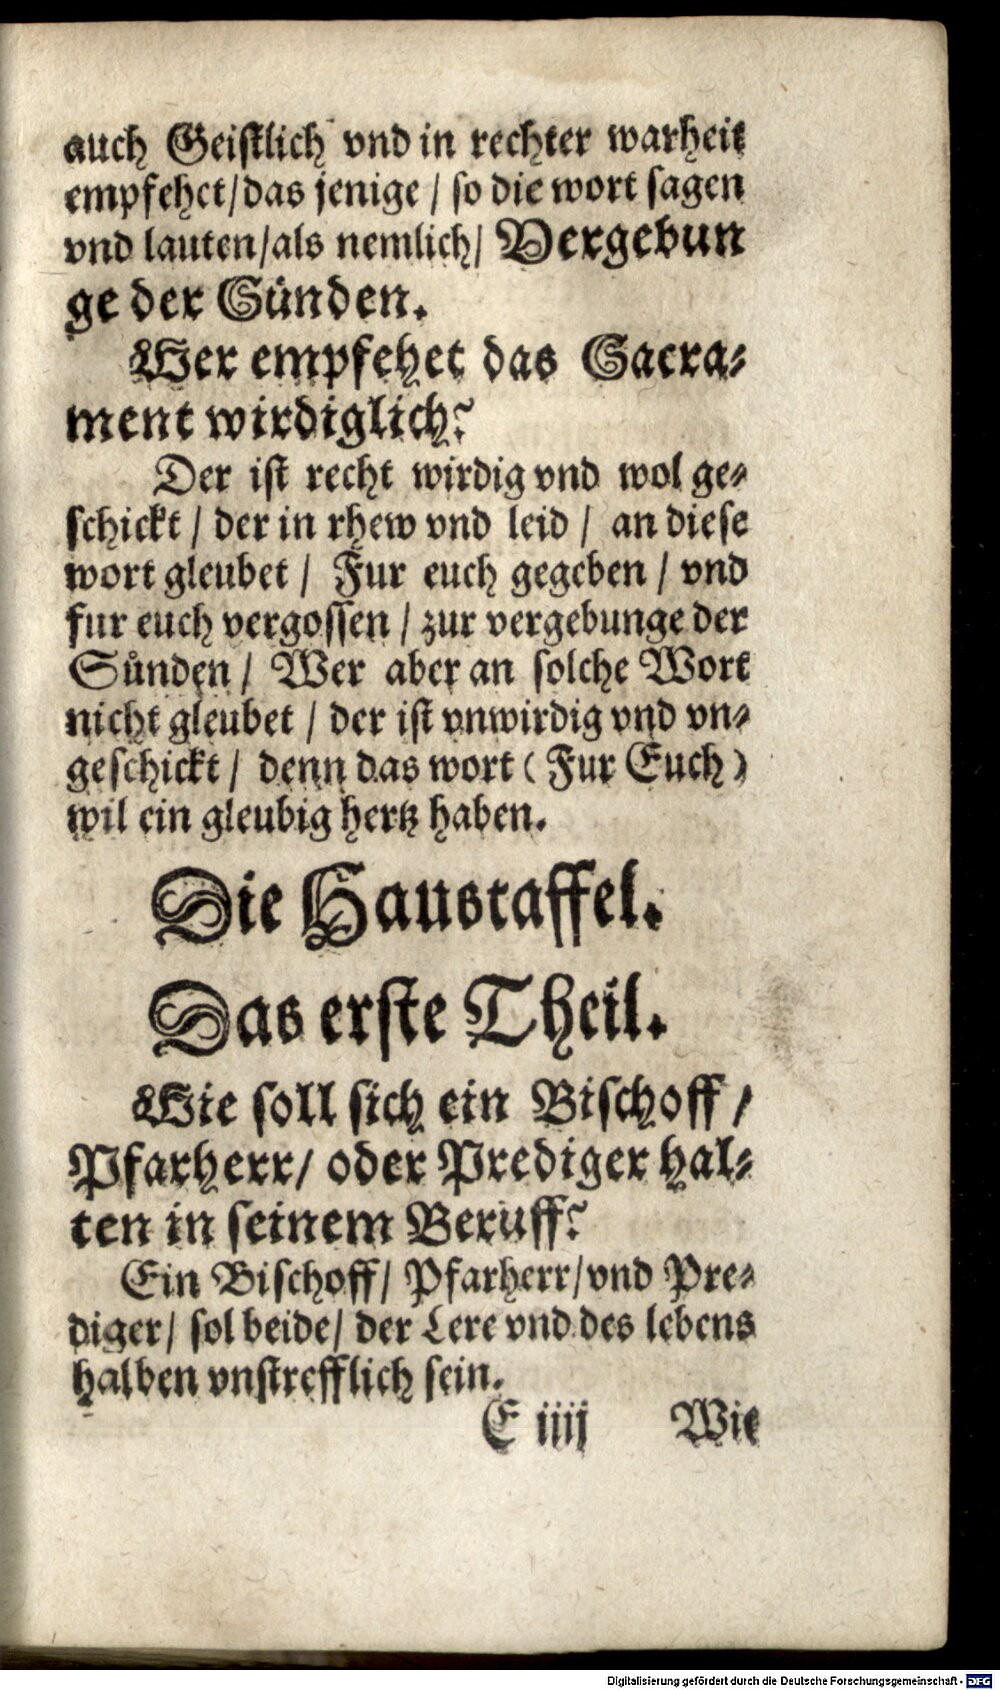 auch Geistlich vnd in rechter warheit
empfehet / das jenige / so die wort sagen
vnd lauten / als nemlich / Vergebun
ge der Sünden.
Wer empfehet das Sacra⸗
ment wirdiglich?
Der ist recht wirdig vnd wol ge⸗
schickt / der in rhew vnd leid / an diese
wort gleubet / Fur euch gegeben / vnd
fur euch vergossen / zur vergebunge der
Sůnden / Wer aber an solche Wort
nicht gleubet / der ist vnwirdig vnd vn⸗
geschickt / denn das wort ( Fur Euch )
wil ein gleubig hertz haben.
Die Haustaffel.
Das erste Theil.
Wie soll sich ein Bischoff /
Pfarherr / oder Prediger hal⸗
ten in seinem Beruff?
Ein Bischoff / Pfarherr / vnd Pre⸗
diger / sol beide / der Lere vnd des lebens
halben vnstrefflich sein.
E iiij Wie
Digitalisierung gefördert durch die Deutsche Forschungsgemeinschaft - DFG